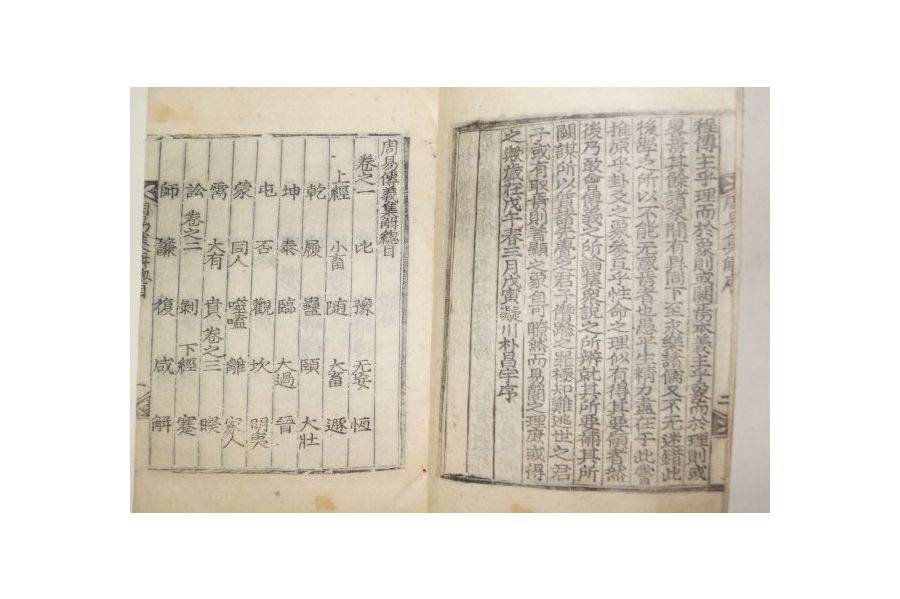 程傳主乎理而於象則或闕焉本義主乎象而於理則或
畧焉其餘諸家間有異同下至永樂諸儒又不无迷錯此
後學之所以不能无惑焉者也愚平生精力盡在于此嘗
推原乎卦爻之象參互乎性命之理似有得其要領者然
後乃敢會傳義之所論集衆說之所辨就其所要補其所
闕謀所以質諸先覺之君子僭踰之罪極知難逃世之君
子或有取焉則著顯之象自可瞭然而易簡之理庶或得
之歟歲在戊午春三月戊寅凝川朴昌宇序
周易傳義集解總目
卷之一 比 豫 无妄 恆
上經 小畜 隨 大畜 遯
乾 履 蠱 頤 大壯
坤 泰 臨 大過 晉
屯 否 觀 坎 明夷
蒙 同人 噬嗑 離 家人
需 大有 賁 卷之三 睽
訟 卷之二 剝 下經 蹇
師 謙 復 咸 解